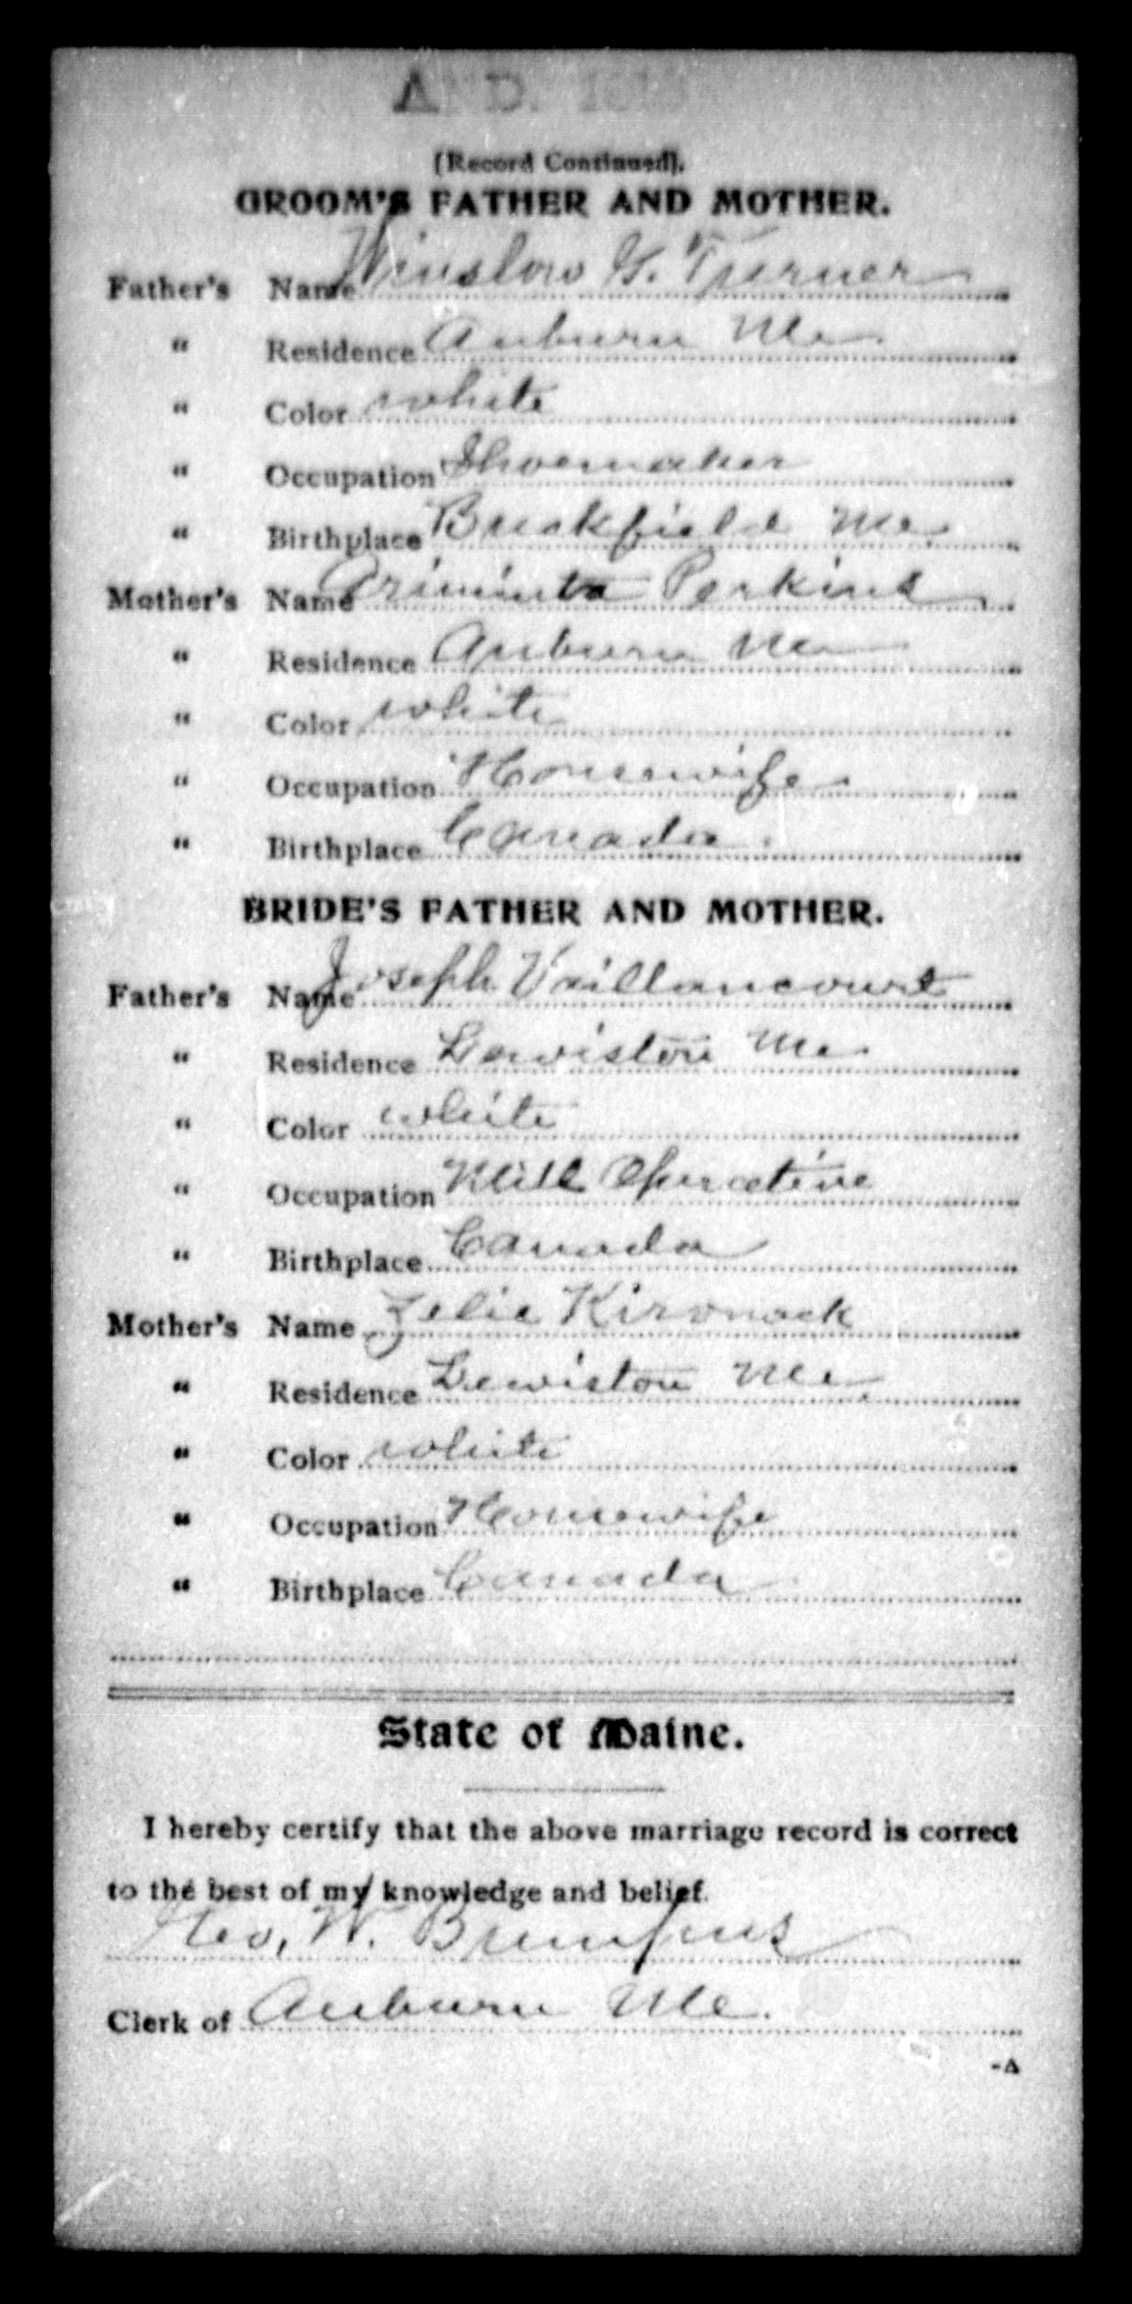 AND.
(Record Continued).
GROOM'S FATHER AND MOTHER.
Father's Name Winslow G. Turner
" Residence Auburn Me.
" Color white
" Occupation Shoemaker
" Birthplace Buckfield Me.
Mother's Name Perkins
" Residence Auburn Me
" Color white
" Occupation Housewife
" Birthplace Canada
BRIDE'S FATHER AND MOTHER.
Father's Name Joseph Vaillancourt
" Residence Lewiston Me.
" Color white
" Occupation Mill Operative
" Birthplace Canada
Mother's Name Zelie
" Residence Lewiston Me.
" Color white
" Occupation Housewife
" Birthplace Canada
State of Maine.
I hereby certify that the above marriage record is correct
to the best of my knowledge and belief.
Geo. W.
Clerk of Auburn Me.
-A